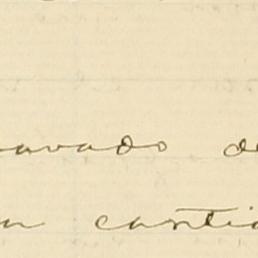 avado de
n cantid